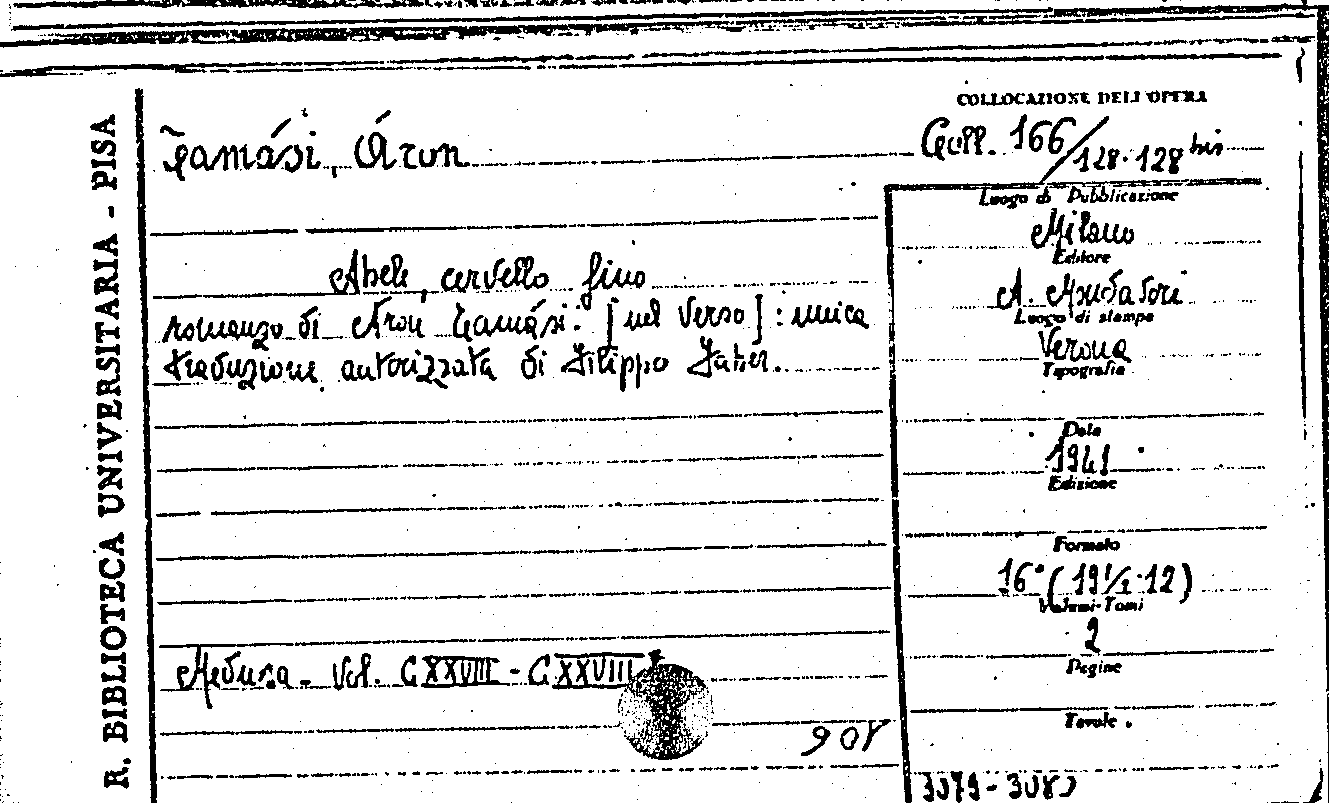 R. BIBLIOTECA UNIVERSITARIA - PISA
COLLOCAZIONE DELL'OPERA
Tamási, Áron
Coll. 166/128-128 bis
Luogo di Pubblicazione
Milano
Editore
A. Mondadori
Luogo di stampa
Verona
Tipografia
Data
1941
Edizione
Formato
16° (19½-12)
Volumi-Tomi
2
Pagine
Tavole.
Abele, cervello fino
romanzo di Áron Tamási. [nel verso]: unica
traduzione autorizzata di Filippo Faber.
Medusa - Vol. CXXVIII - CXXVIII*
908